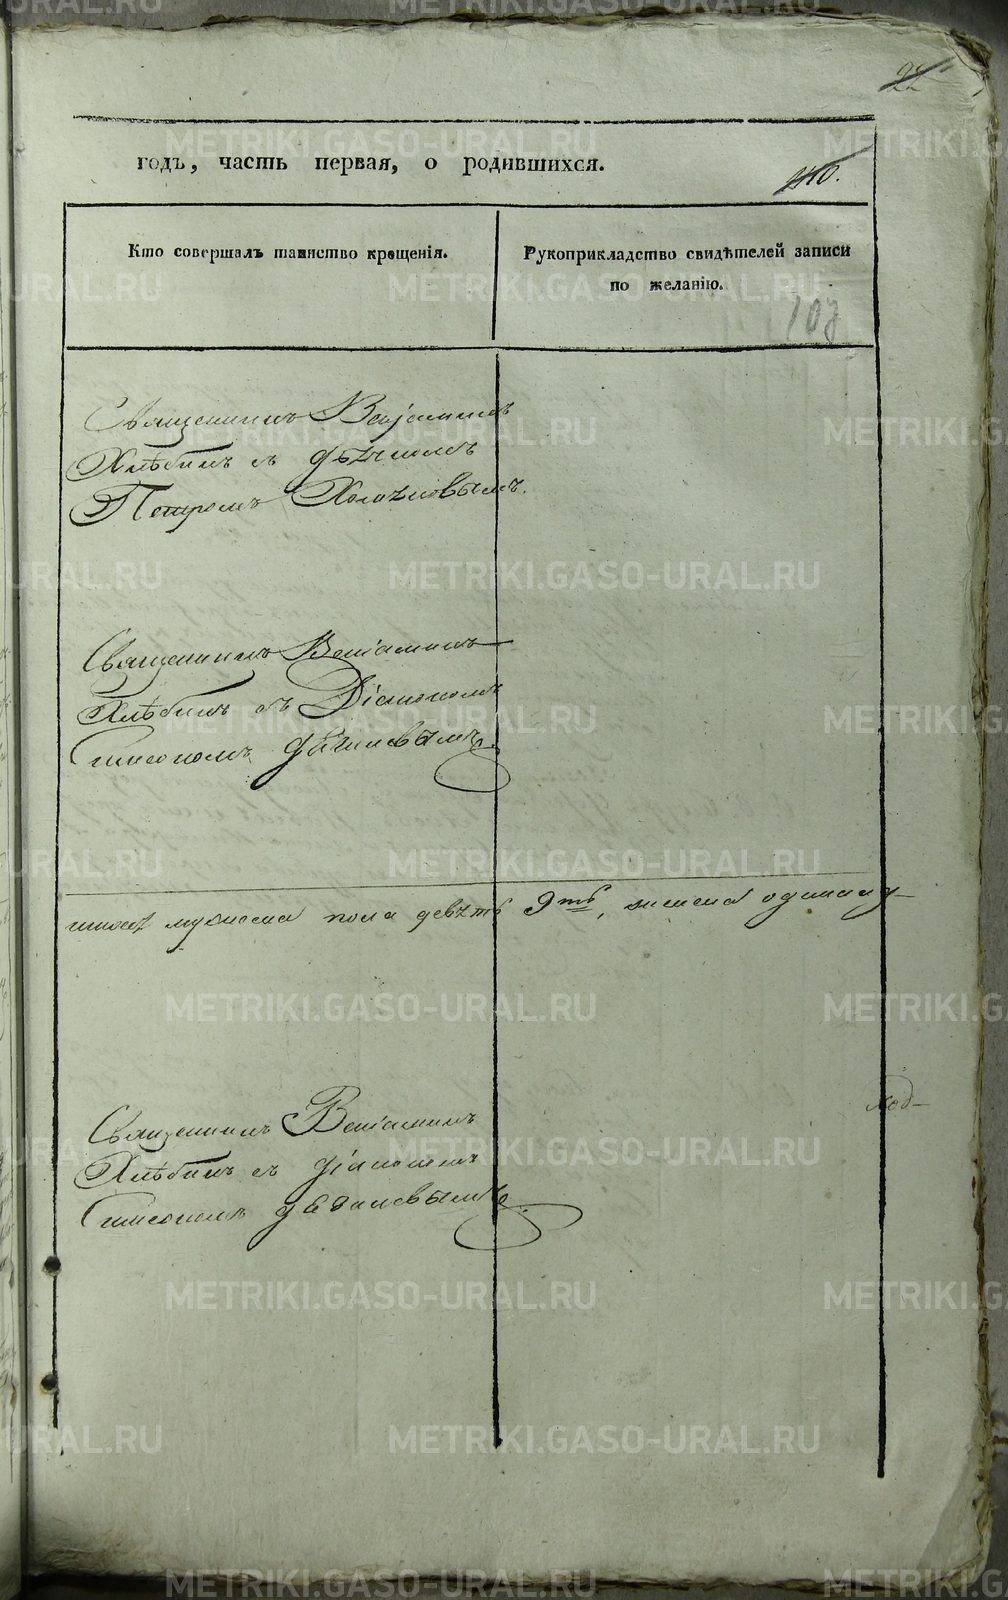 22
годъ, часть первая, о родившихся.
110.
Кто совершалъ таинство крещенія.
Рукоприкладство свидѣтелей записи
по желанію.
107
Священникъ Веніаминъ
Хлѣбинъ съ дьячкомъ
Петромъ Холочковымъ.
Священникъ Веніаминъ
Хлѣбинъ съ Діакономъ
Симеономъ
мужеска пола девять 9ть, женска
Священникъ Веніаминъ
Хлѣбинъ съ діакономъ
Симеономъ
METRIKI.GASO-URAL.RU